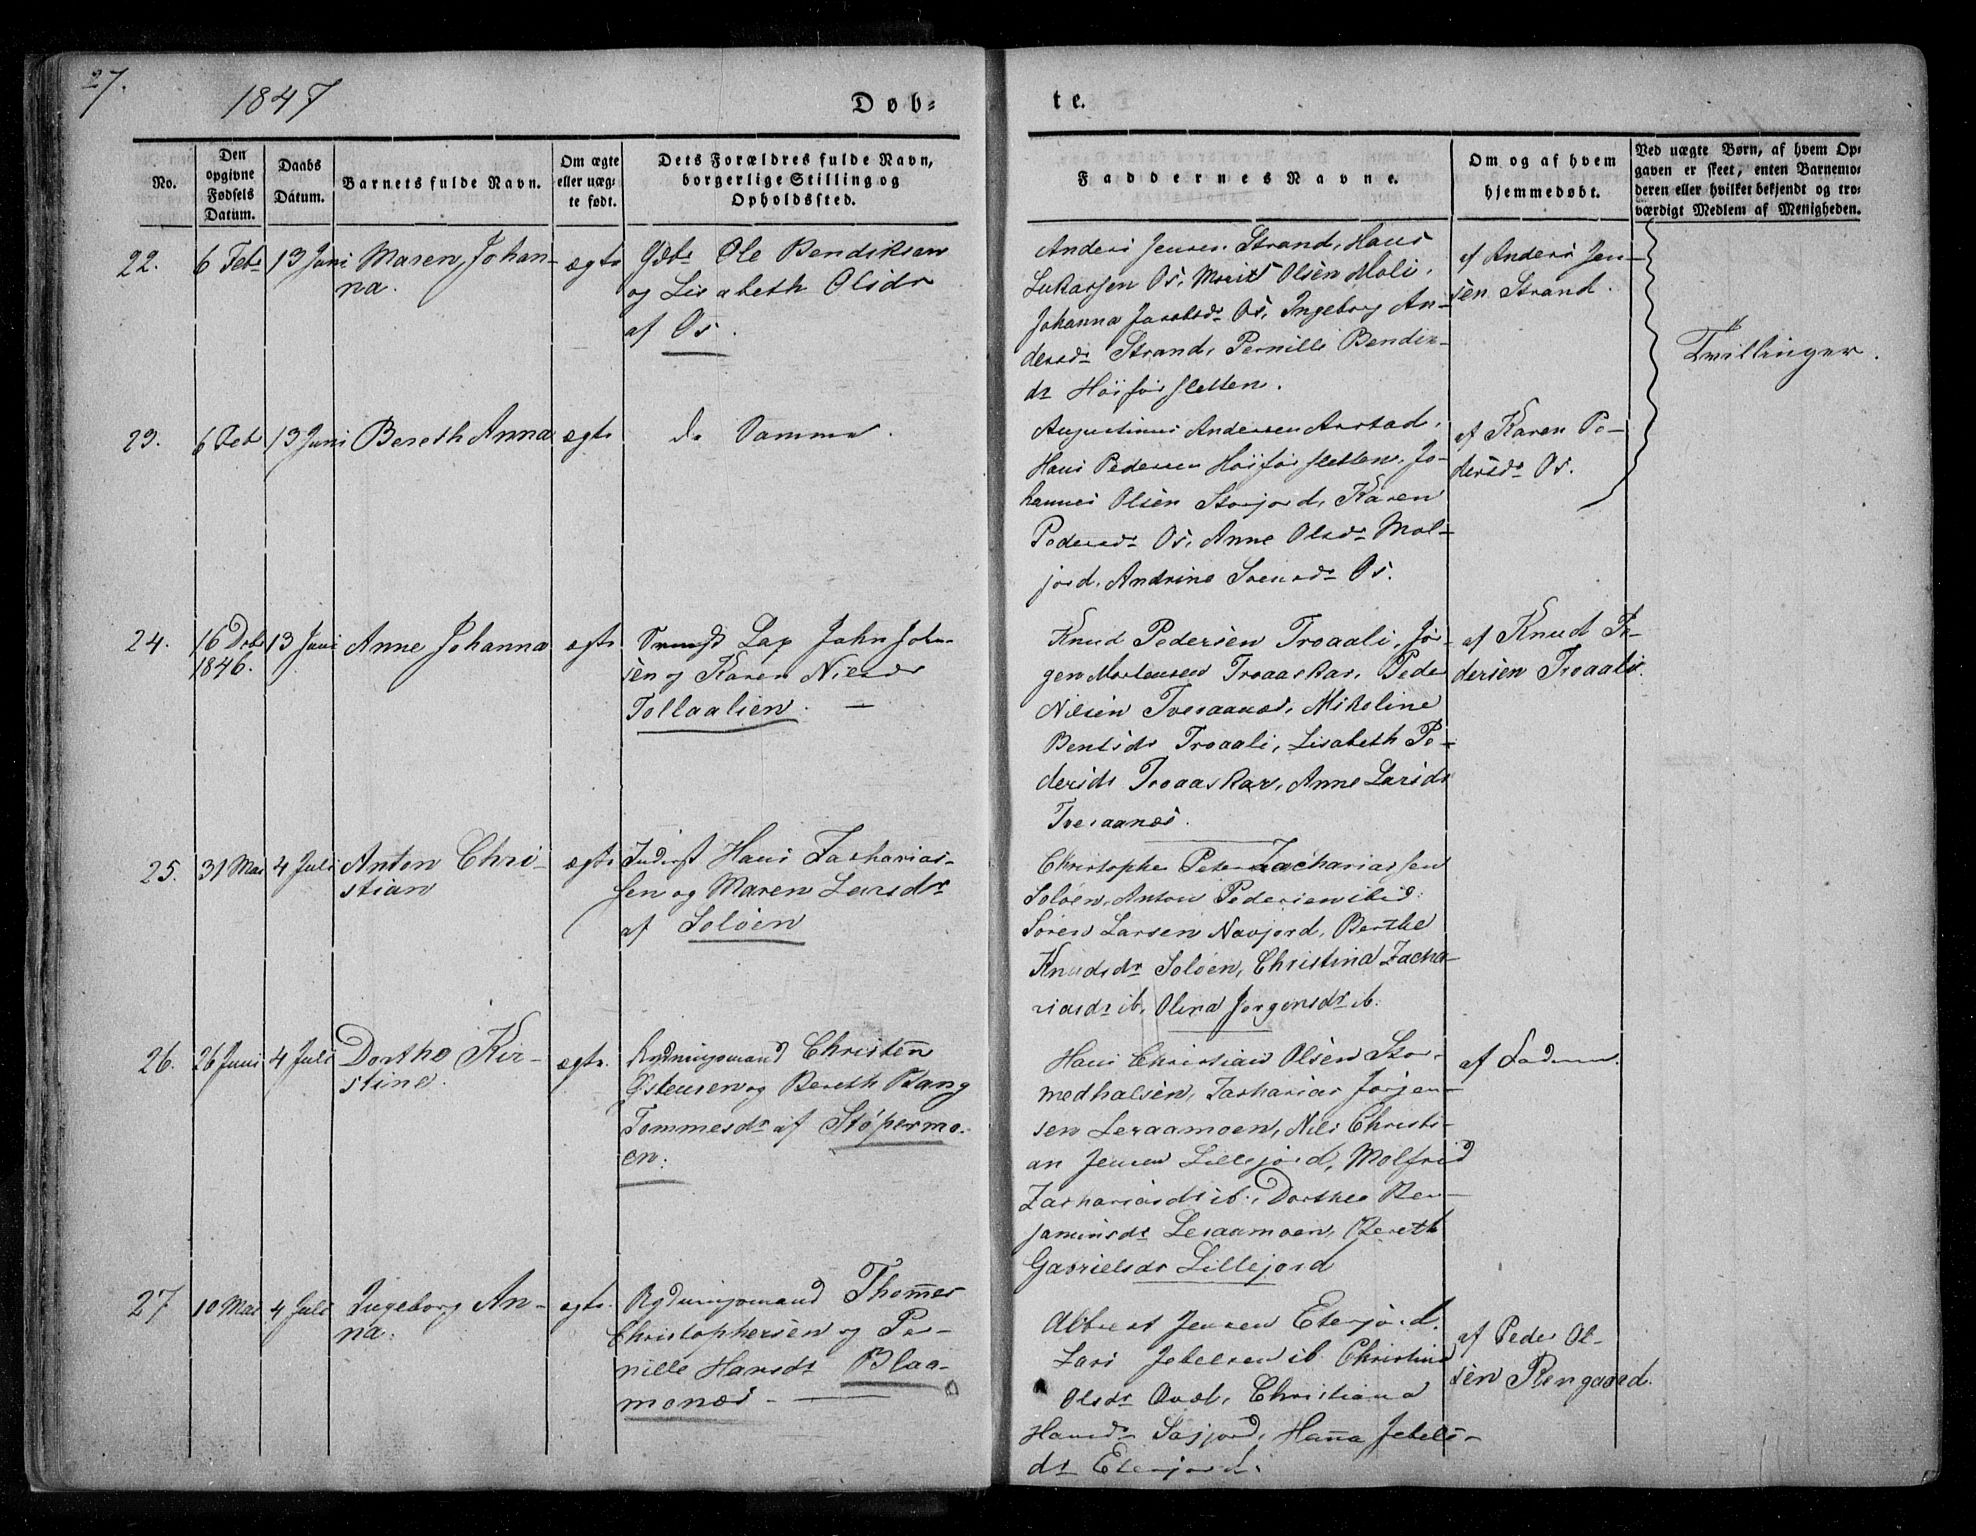 27.
1847
Døb-
te.
No.
Den opgivne Fødsels Datum.
Daabs Datum.
Barnets fulde Navn.
Om ægte eller uæg- te født.
Dets Forældres fulde Navn, borgerlige Stilling og Opholdssted.
Faddernes Navne.
Om og af hvem hjemmedøbt.
Ved uægte Børn, af hvem Op- gaven er skeet, enten Barnemo- deren eller hvilket bekjendt og tro- værdigt Medlem af Menigheden.
22. 6 Feb 13 Juni Maren, Johan-
na.
ægte
Gdb Ole Bendiksen
og Lisabeth Olsdr
af Os.
Anders Jensen Strand, Hans
Lukassen Os, Morits Olsen Moli,
Johanna Jacobsdr Os, Ingeborg An-
dersdr Strand, Pernille Bendix-
dr Høiforsletten.
af Anders Jen-
sen Strand.
Tvillinger.
23. 6 Feb 13 Juni Bereth Anna ægte
do Samme.
Augustinus Andersen Aarstad,
Hans Pedersen Høiforsletten, Jo-
hannes Olsen Storjord, Karen
Pedersdr Os, Anne Olsdr Mol-
jord, Andrine Svensdr Os.
af Karen Pe-
dersdr Os.
24. 16 Dcbr 13 Juni Anne Johanna ægte
1846.
Lap John John
sen og Karen Nilsdr
Tollaalien.
Knud Pedersen Troaali, Jør-
gen Mortensen Troaaskar, Peder
Nilsen Tveraanæs, Mikeline
Bentsdr Troaali, Lisabeth Pe-
dersdr Troaaskar, Anne Larsdr
Tveraanæs.
af Knud Pe-
dersen Troaali.
25. 31 Mai 4 Juli Anton Chri-
stian
ægte
Inderst Hans Zacharias-
sen og Maren Larsdr
af Soløen
Christopher Peter Zachariassen
Soløen, Anton Pedersen ibid:
Søren Larsen Navjord, Berthe
Knudsdr Soløen, Christina Zacha-
riasdr ib, Olina Jørgensdr ib.
26. 26 Juni 4 Juli Dorthe Kir-
stine.
ægte.
Rydningsmand Christen
Østensen og Bereth Bang
Tommesdr af Støpermo-
en.
Hans Christian Olsen Stor-
medhalsen, Zacharias Jørgen-
sen Leraamoen, Nils Christi-
an Jensen Lillejord, Molfrid
Zachariasdr ib., Dorthea Ben-
jaminsdr Leraamoen, Bereth
Gabrielsdr Lillejord
af Faderen.
27 10 Mai 4 Juli Ingeborg An-
na.
ægte.
Rydningsmand Thommes
Christophersen og Per-
nille Hansdr Blaa-
monæs.
Albert Jensen Eterjord.
Lars Jebelsen ib. Christina
Olsdr Qval, Christiana
Hansdr Saxjord, Hanna Jebels-
dr Eterjord.
af Peder Ol-
sen Rengaard.